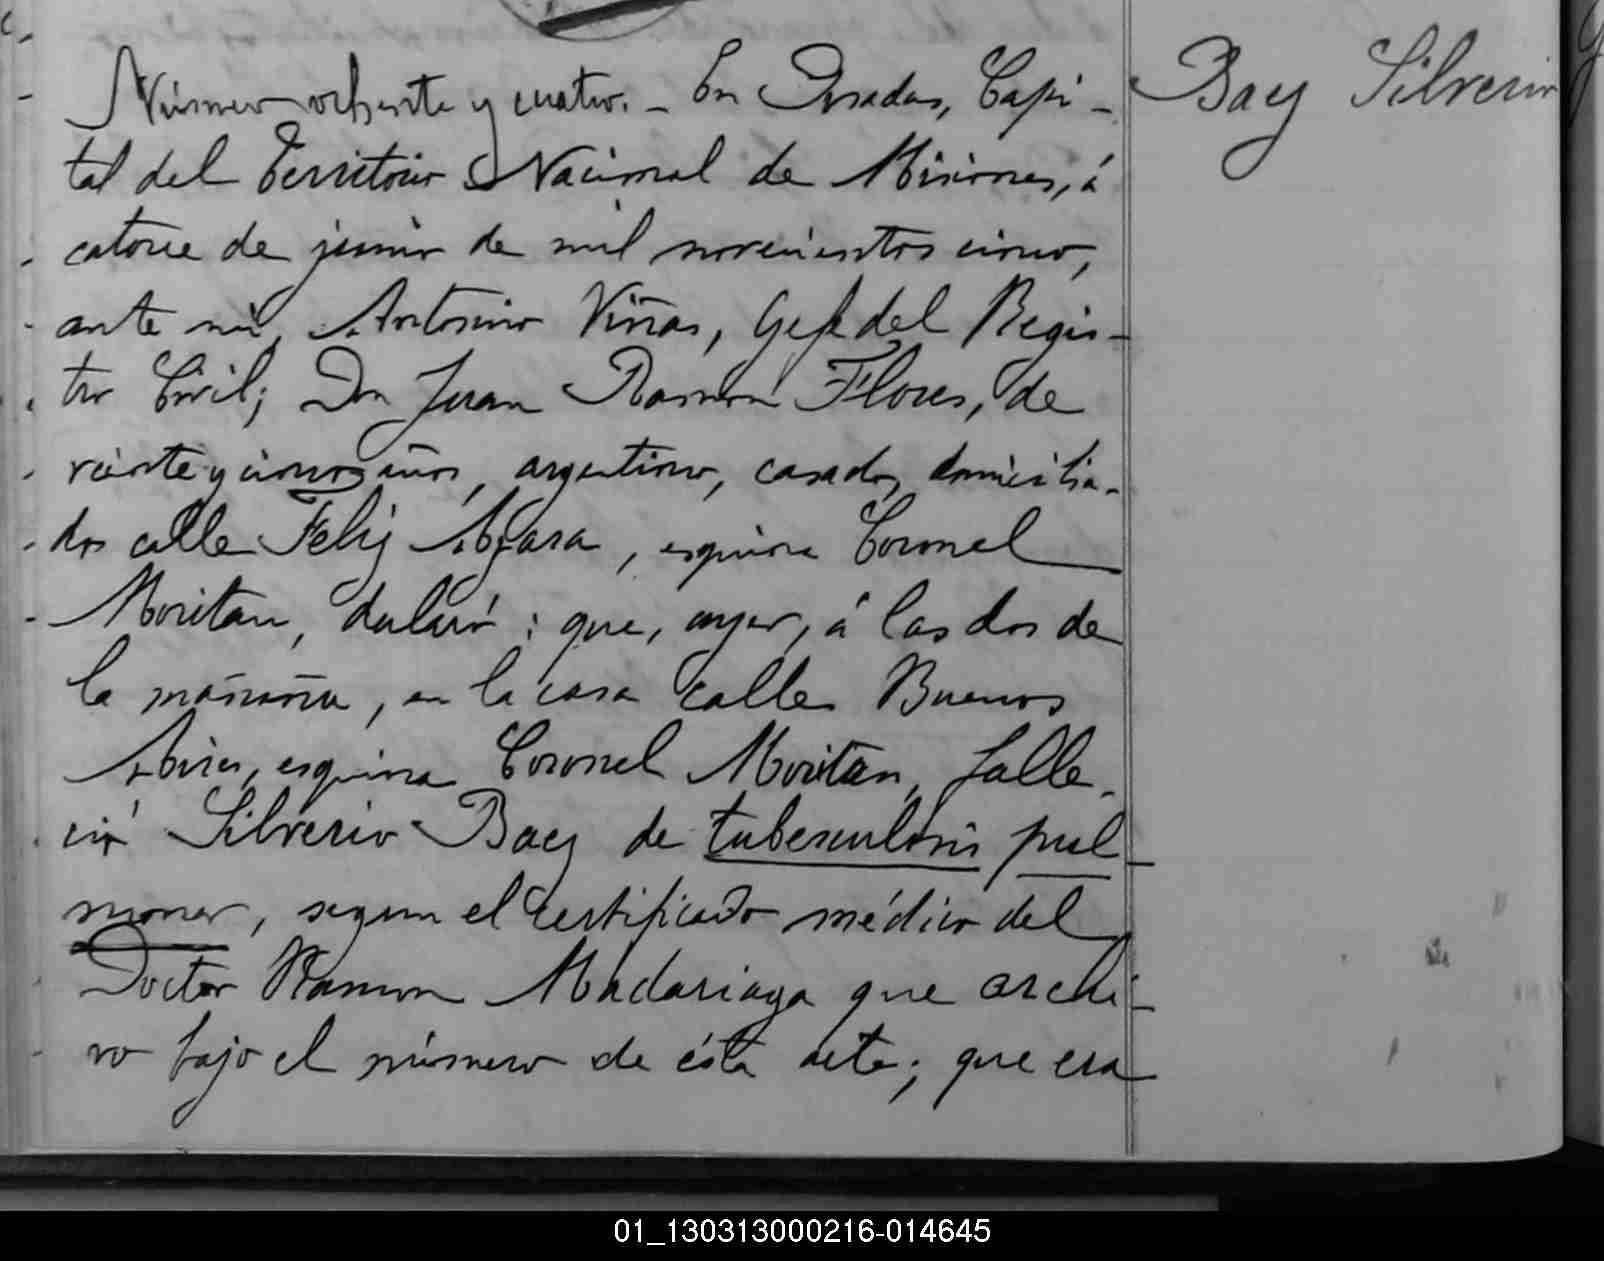 Número ochenta y cuatro. - En Posadas, Capi-
tal del Territorio Nacional de Misiones, á
catorce de junio de mil novecientos cinco,
ante mí, Antonino Viñas, Gefe del Regis-
tro Civil; Don Juan Ramon Flores, de
veinte y cinco años, argentino, casado, domicilia-
do calle Feliz Azara, esquina Coronel
Moritan, declaró: que, ayer, á las dos de
la mañana, en la casa calle Buenos
Aires, esquina Coronel Moritan, falle-
ció Silverio Baez de tuberculosis pul-
monar, segun el certificado médico del
Doctor Ramon Madariaga que archi-
vo bajo el número de ésta acta; que era
Baez Silverio
01_130313000216-014645